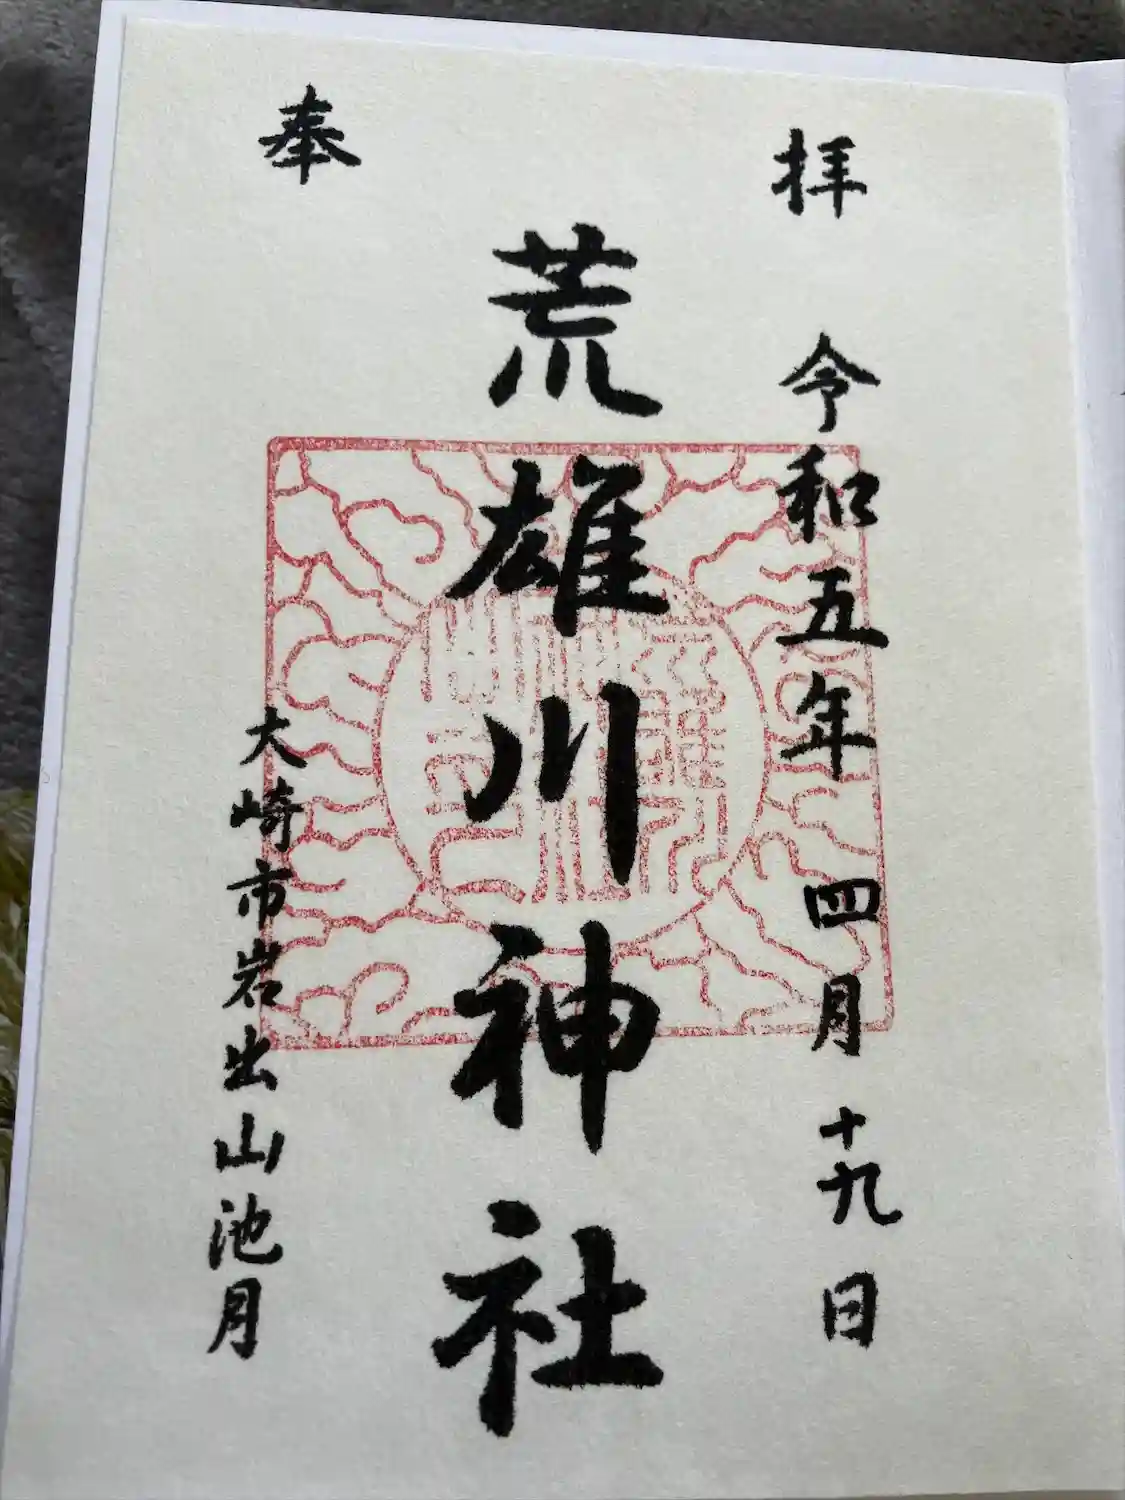 奉
拝
令和五年四月十九日
荒雄川神社
大崎市岩出山池月